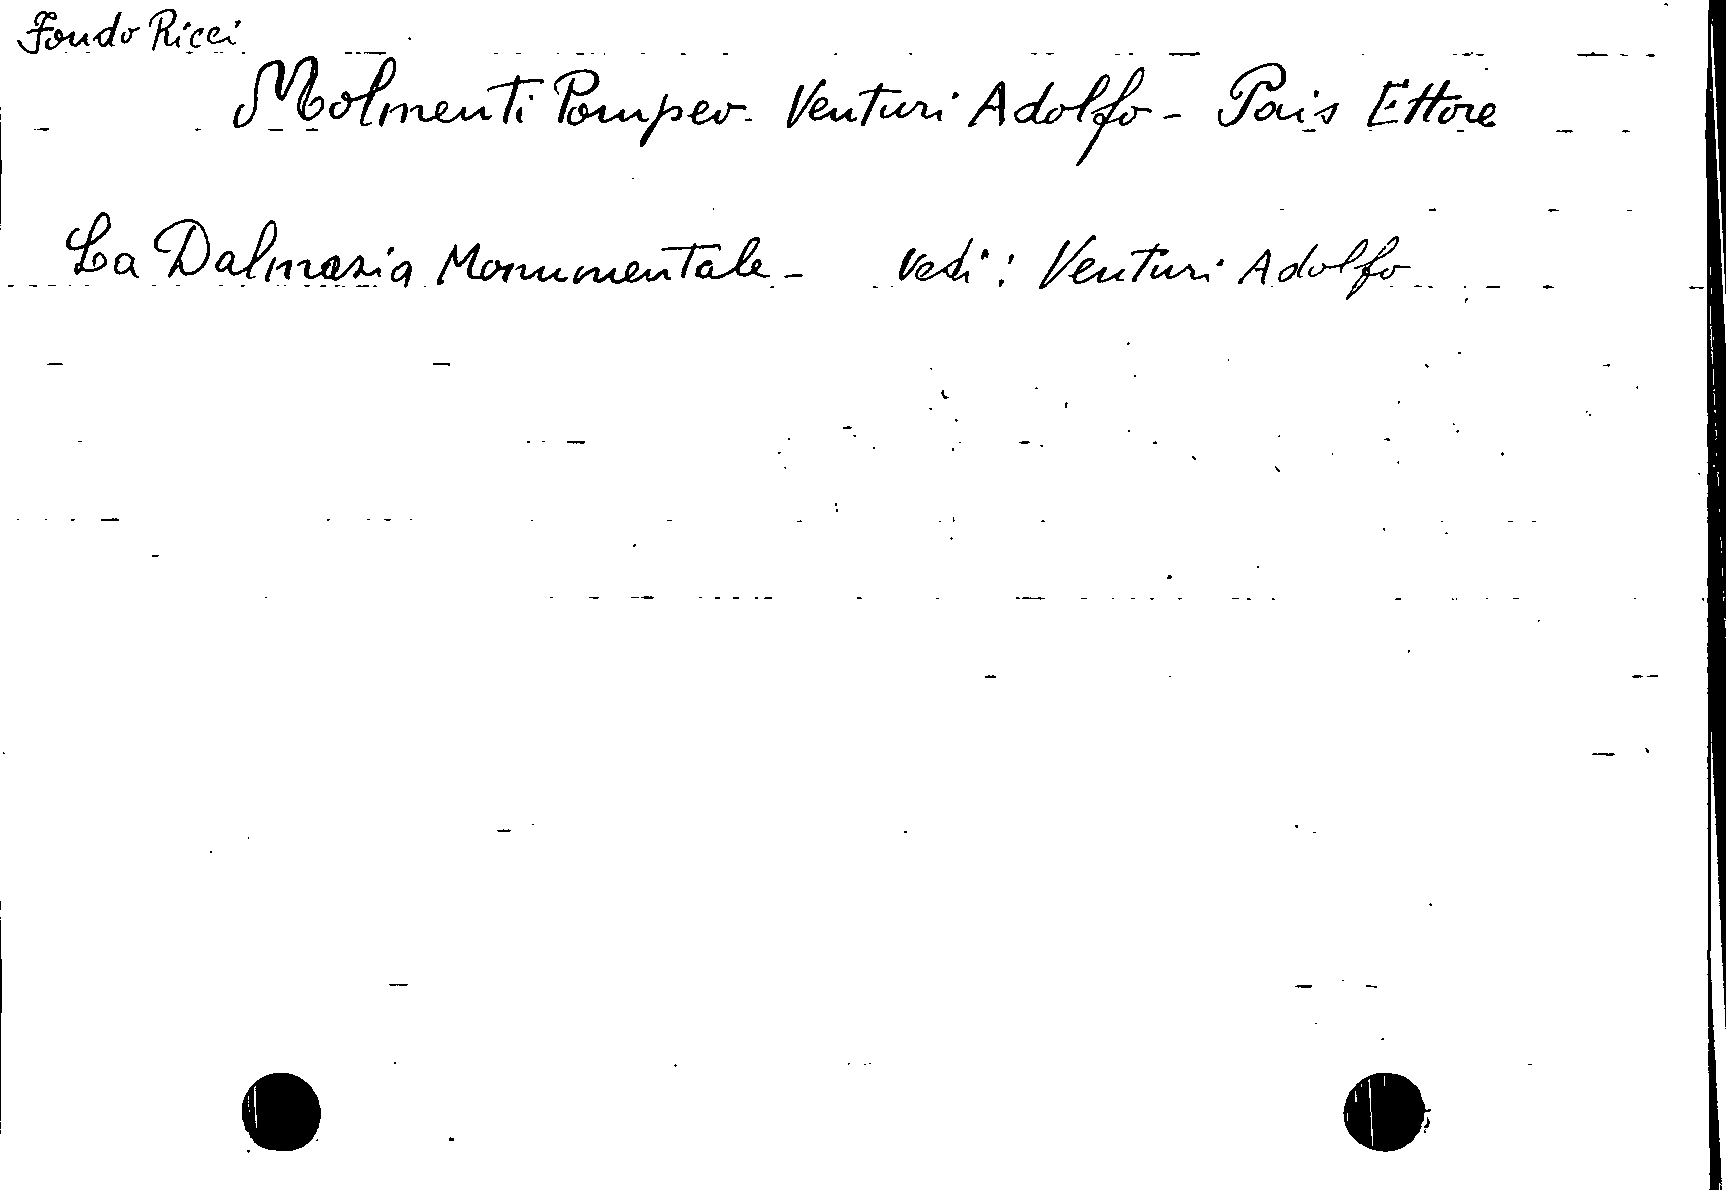 Fondo Ricci
Molmenti Pompeo - Venturi Adolfo - Pais Ettore
La Dalmazia Monumentale - vedi: Venturi Adolfo